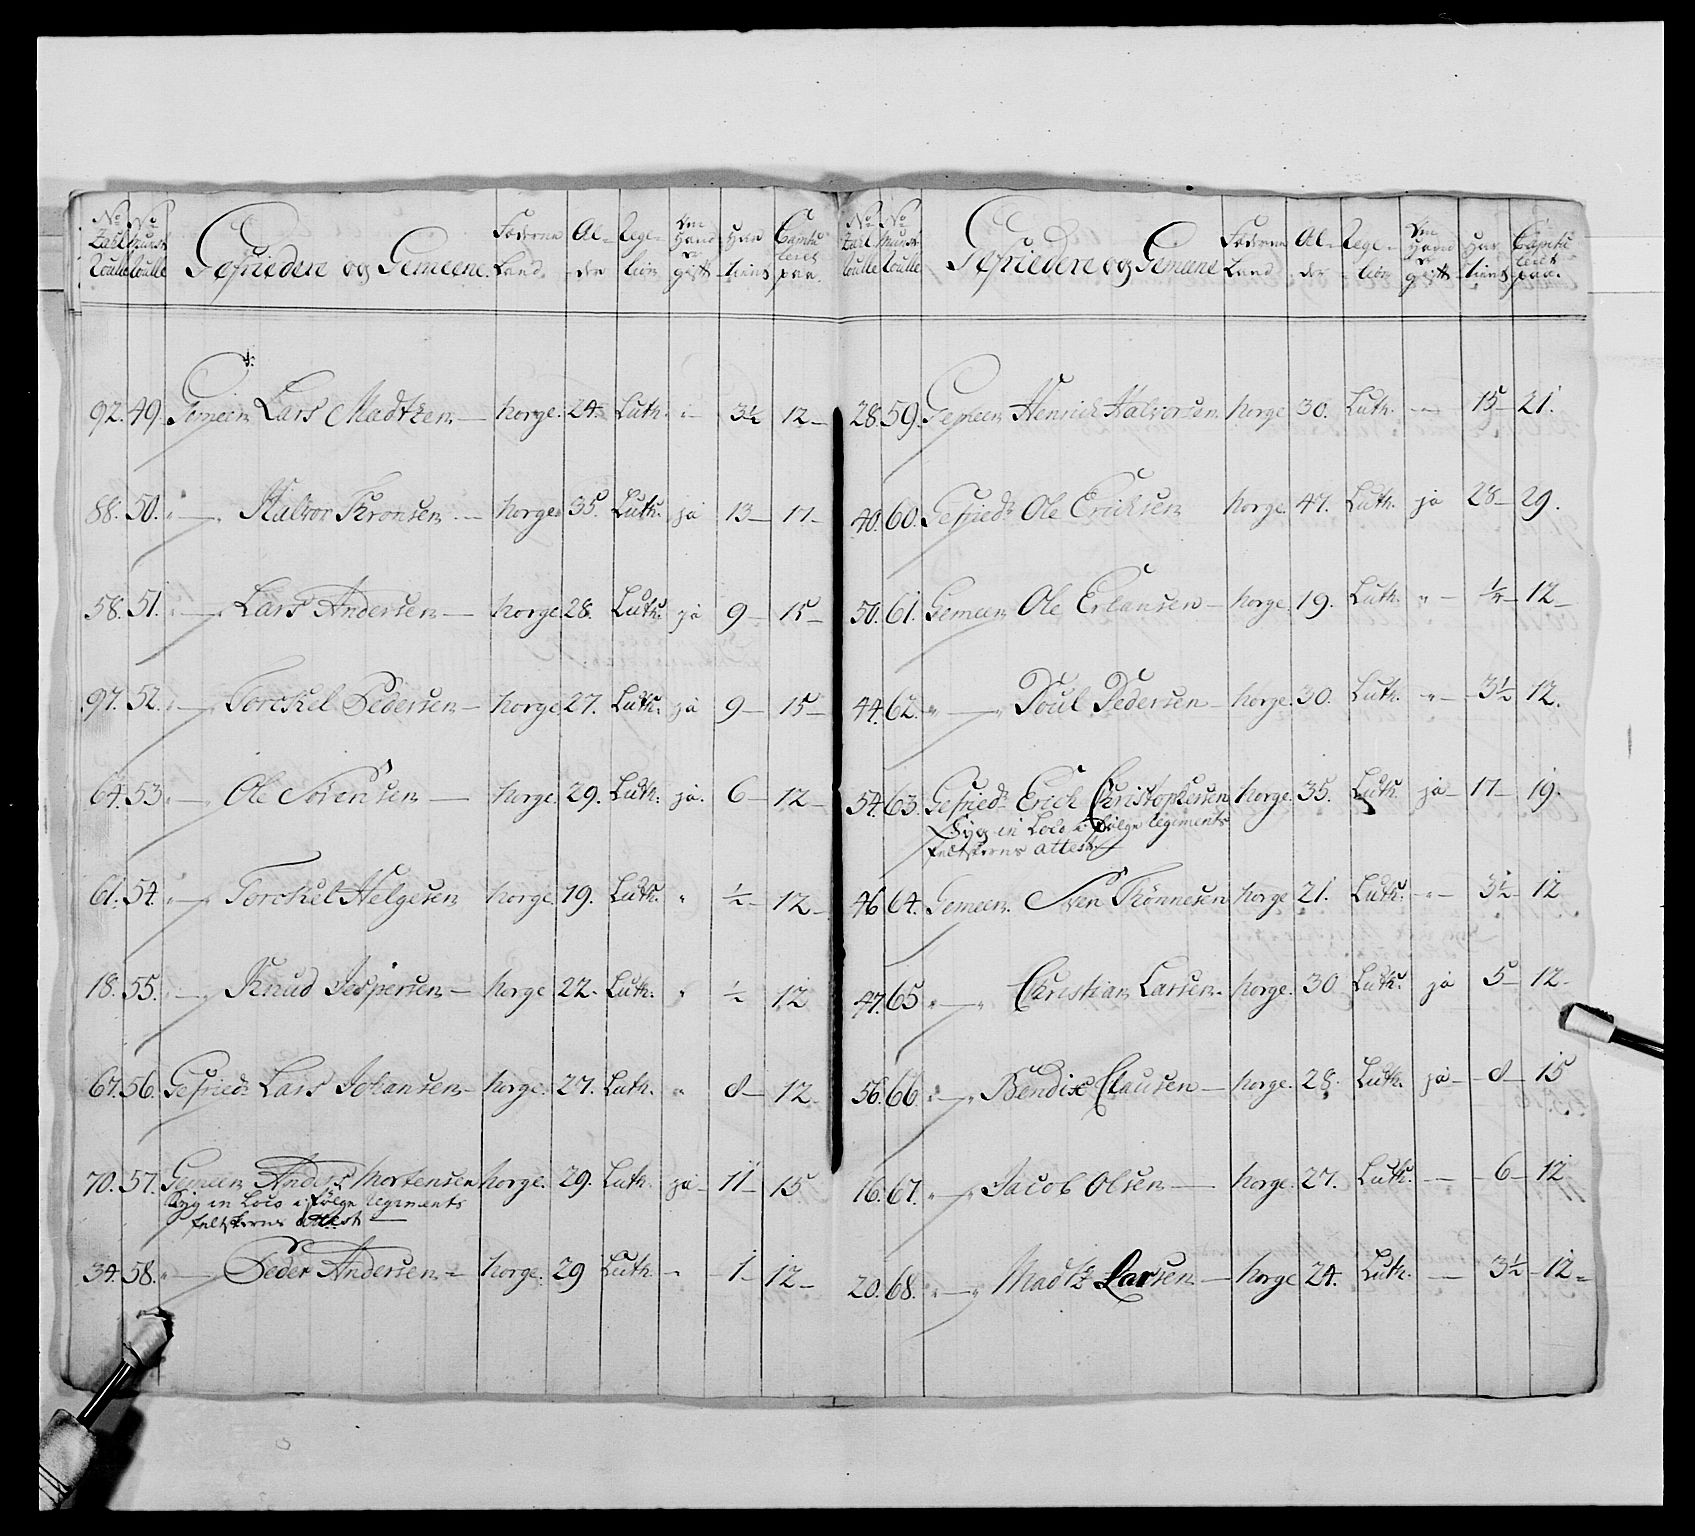 No No Gefriedere og Gemeene. Föderne Al- Rege- Om Hand Har Capitu
Zahl Munst. Land. der lion er tient leret
Roulle Roulle gift paa.
92. 49. Gemeen Lars Madtzen — Norge. 24. Luth. " 3½ 12 —
88. 50. " — " Halvor Tronsen — Norge. 35. Luth. ja 13 — 17 —
58. 51. " — " Lars Andersen — Norge. 28. Luth. ja 9 — 15 —
97. 52. " — " Torckel Pedersen — Norge. 27. Luth. ja 9 — 15 —
64. 53. " — Ole Sörensen — Norge. 29. Luth. ja. 6 — 12 —
61. 54. " — " Torckel Helgesen Norge. 19. Luth. " ½ — 12 —
18. 55. " — " Knud Jespersen — Norge 22. Luth. " ½ 12
67. 56. Gefried: Lars Johansen — Norge. 27. Luth. " 8 — 12.
70. 57. Gemeen Anders Mortensen Norge. 29. Luth. ja — 11 — 15
Syg in Loco i fölge Regiments
feltskerens attest —
34. 58. " — " Peder Andersen — Norge. 29 Luth — 1 — 12 —
No No Gefriedere og Gemeene Föderne Al- Rege- Om Hand Har Capitu
Zahl Munst. Land der lion er tient leret
Roulle Roulle gift paa.
28. 59. Gemeen Henrich Halvorsen Norge 30. Luth. — 15 — 21.
40. 60. Gefried: Ole Ericksen Norge. 47. Luth. ja 28 — 29.
50. 61. Gemeen Ole Erlansen — Norge. 19. Luth. " — ½ — 12 —
44. 62. " — " Poul Pedersen — Norge. 30. Luth. — " — 3½ 12.
54. 63. Gefried: Erich Christophersen Norge. 35. Luth ja — 17 — 19.
Syg in Loco i fölge Regiments
feltskerens attest
46 64. Gemeen. Sven Tönnesen Norge 21. Luth. — " — 3½ — 12
47. 65. " — " Christian Larsen. Norge. 30 Luth. ja 5 — 12 —
56. 66. " — " Bendix Clausen — Norge. 28. Luth. ja — 8 — 15
16. 67. " — " Jacob Olsen — Norge. 27. Luth. — 6 — 12
20. 68. " — " Madtz Larsen — Norge 24. Luth. — 3½ — 12 —